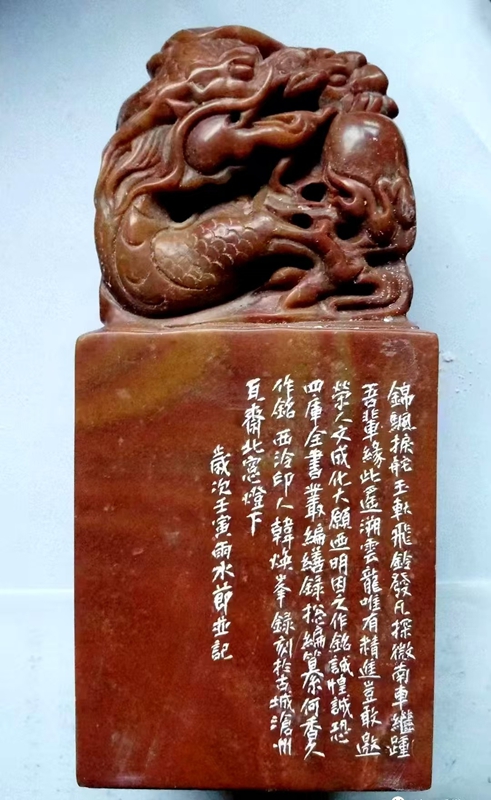 錦颿捩舵玉軑飛鈴發凡探微南車繼踵
吾輩緣此遥溯雲龍唯有精進豈敢邀
榮人文成化大願迺明因之作銘誠惶誠恐
四庫全書叢編繕錄捴編纂佘何香久
作銘 西泠印人韓煥峯錄刻於古城滄州
瓦齋北窻燈下
歲次壬寅雨水節並記